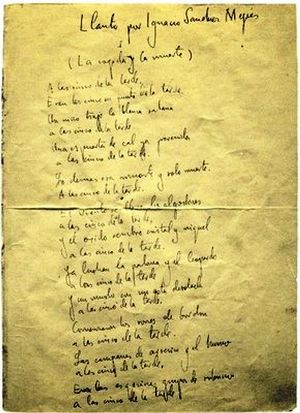 Llanto por Ignacio Sanchez Mejias
1
(La cogida y la muerte)
A las cinco de la tarde.
Eran las cinco en punto de la tarde.
Un niño trajo la blanca sabana
a las cinco de la tarde
Una espuerta de cal ya prevenida
a las cinco de la tarde.
Lo demas era muerte y solo muerte.
A las cinco de la tarde.
El viento se llevo los algodones
a las cinco de la tarde,
y el oxido sembro cristal y niquel
a las cinco de la tarde.
Ya luchan la paloma y el leopardo
a las cinco de la tarde
y un muslo con un asta desolada
a las cinco de la tarde.
Comenzaron los sones de bordon
a las cinco de la tarde.
Las campanas de arsenico y el humo
a las cinco de la tarde,
En las esquinas grupos de silencio
a las cinco de la tarde